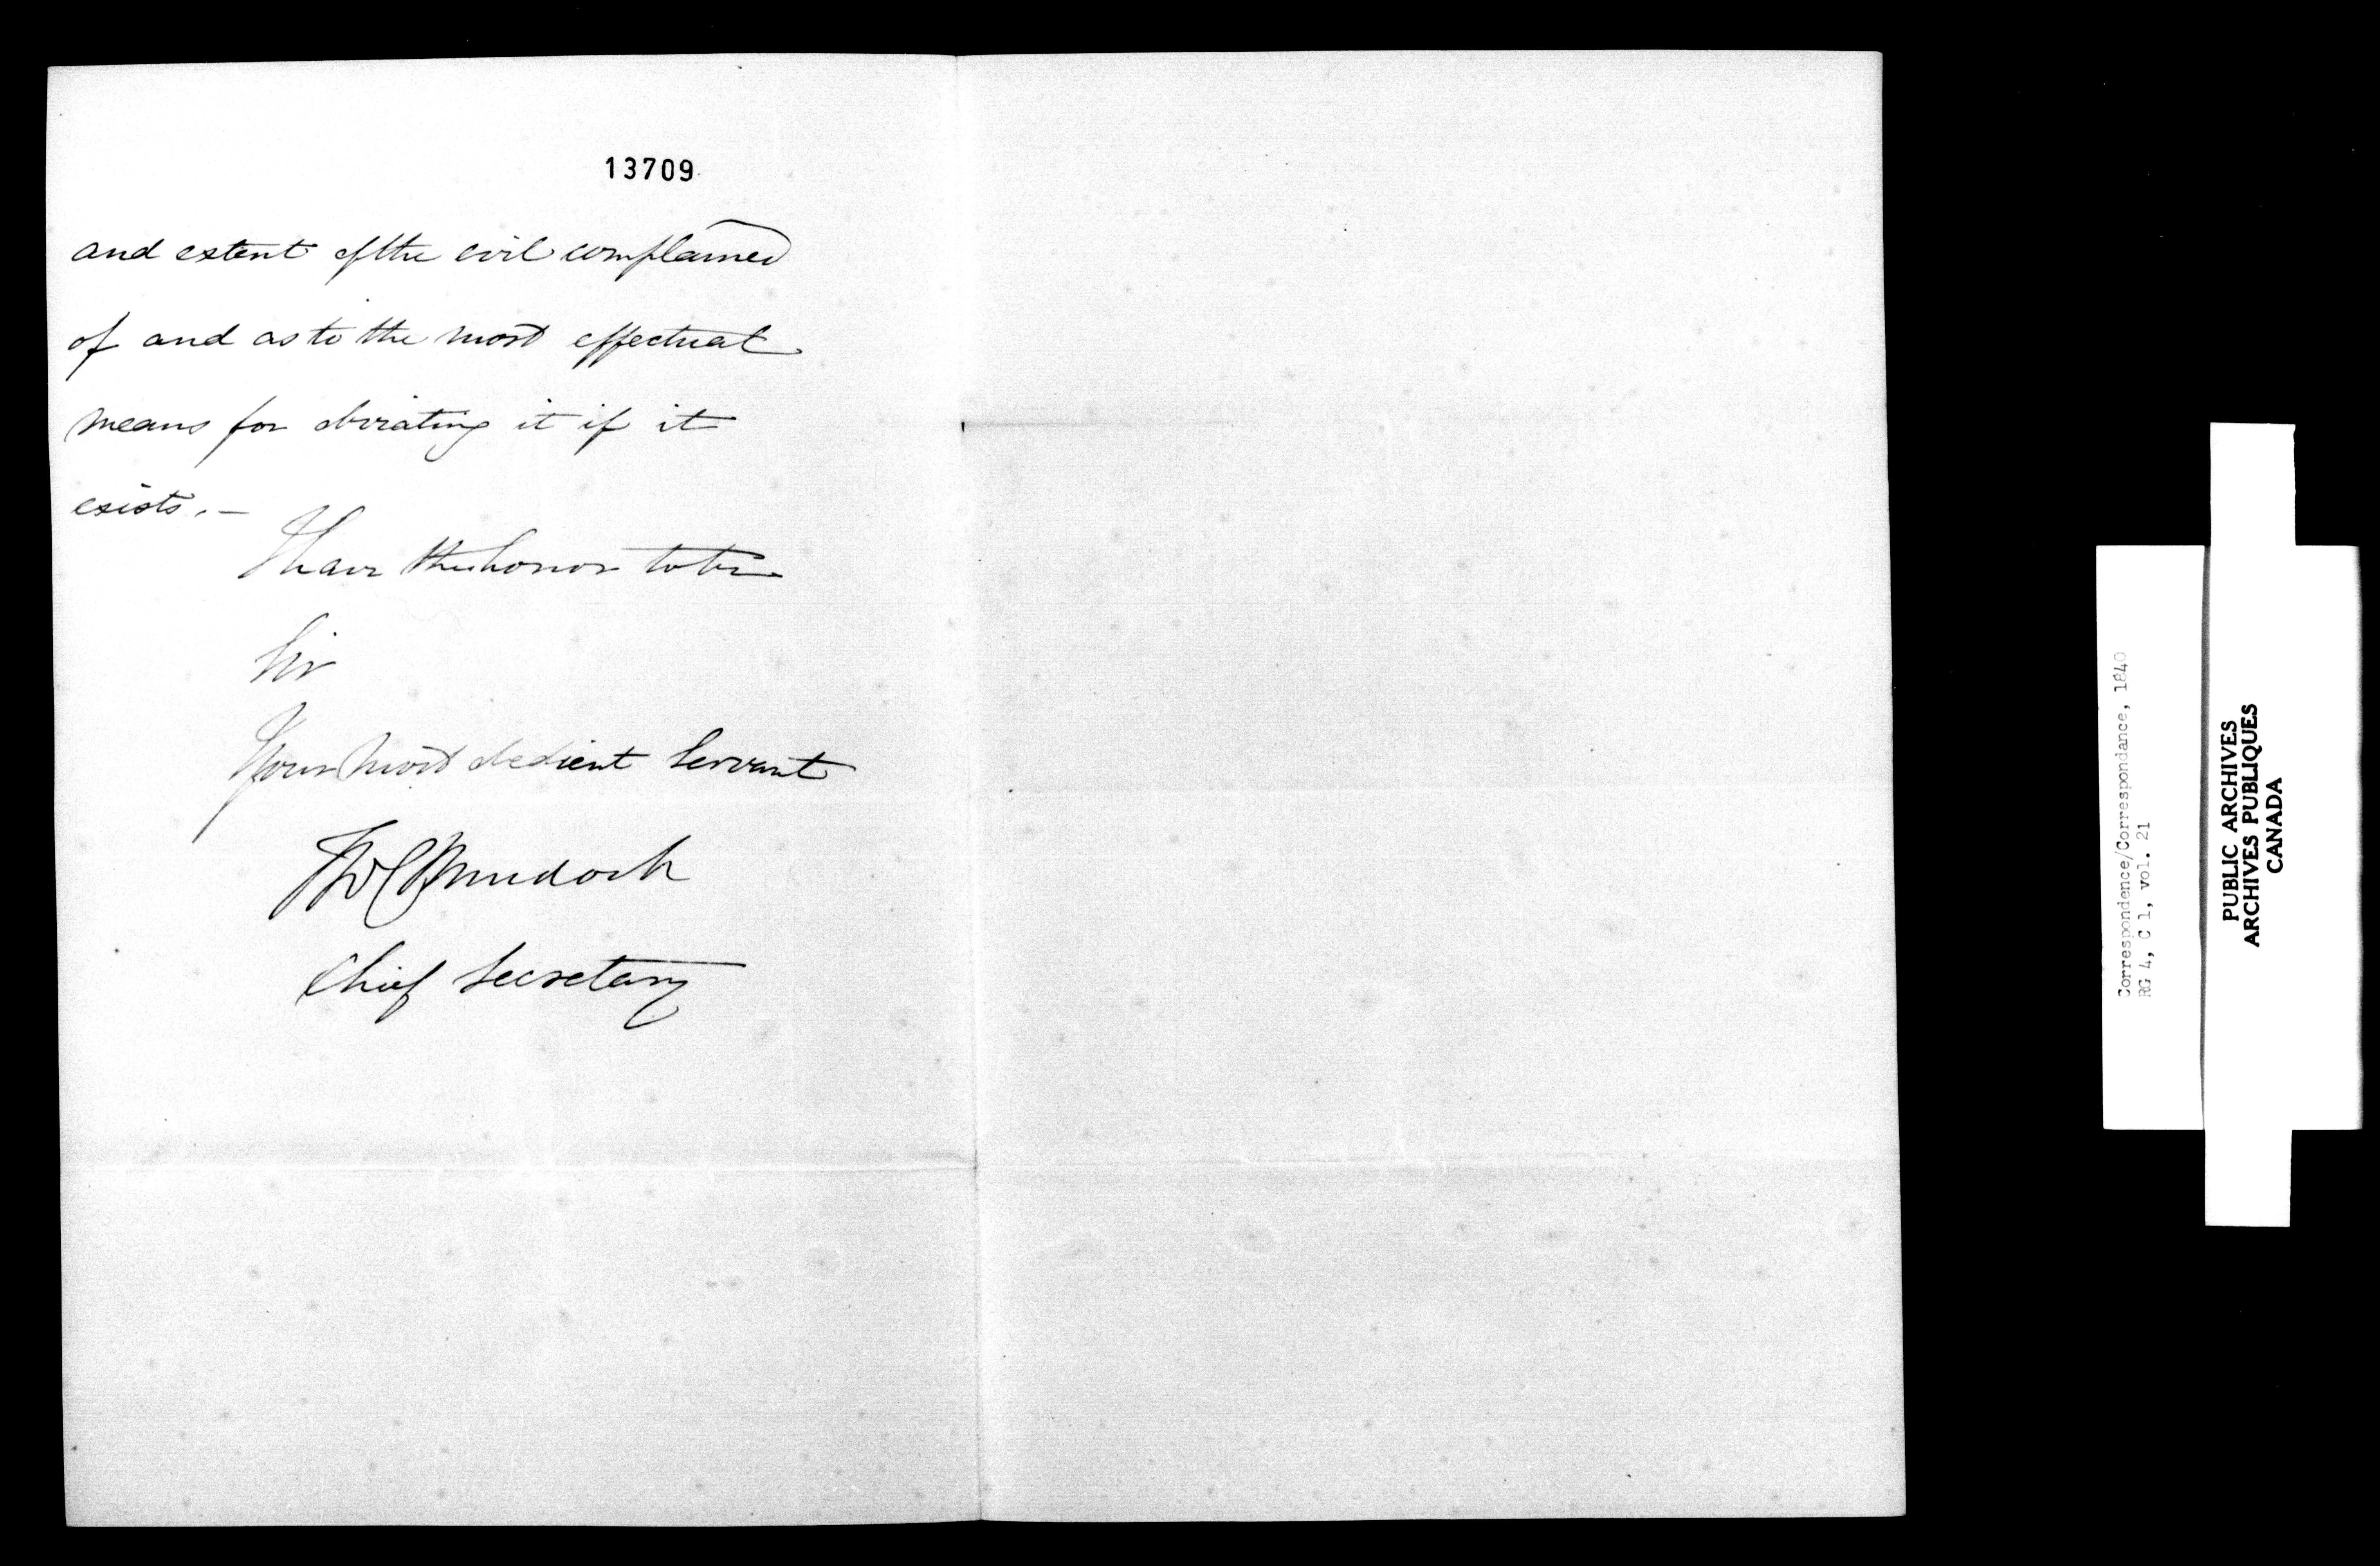 13709
and extent of the evil complained
of and as to the most effectual
means for obviating it if it
exists. —
I have the honor to be
Sir
Your most obedient Servant
T W C Murdoch
Chief Secretary
Correspondence/Correspondance, 1840
RG 4, C 1, vol. 21
PUBLIC ARCHIVES
ARCHIVES PUBLIQUES
CANADA